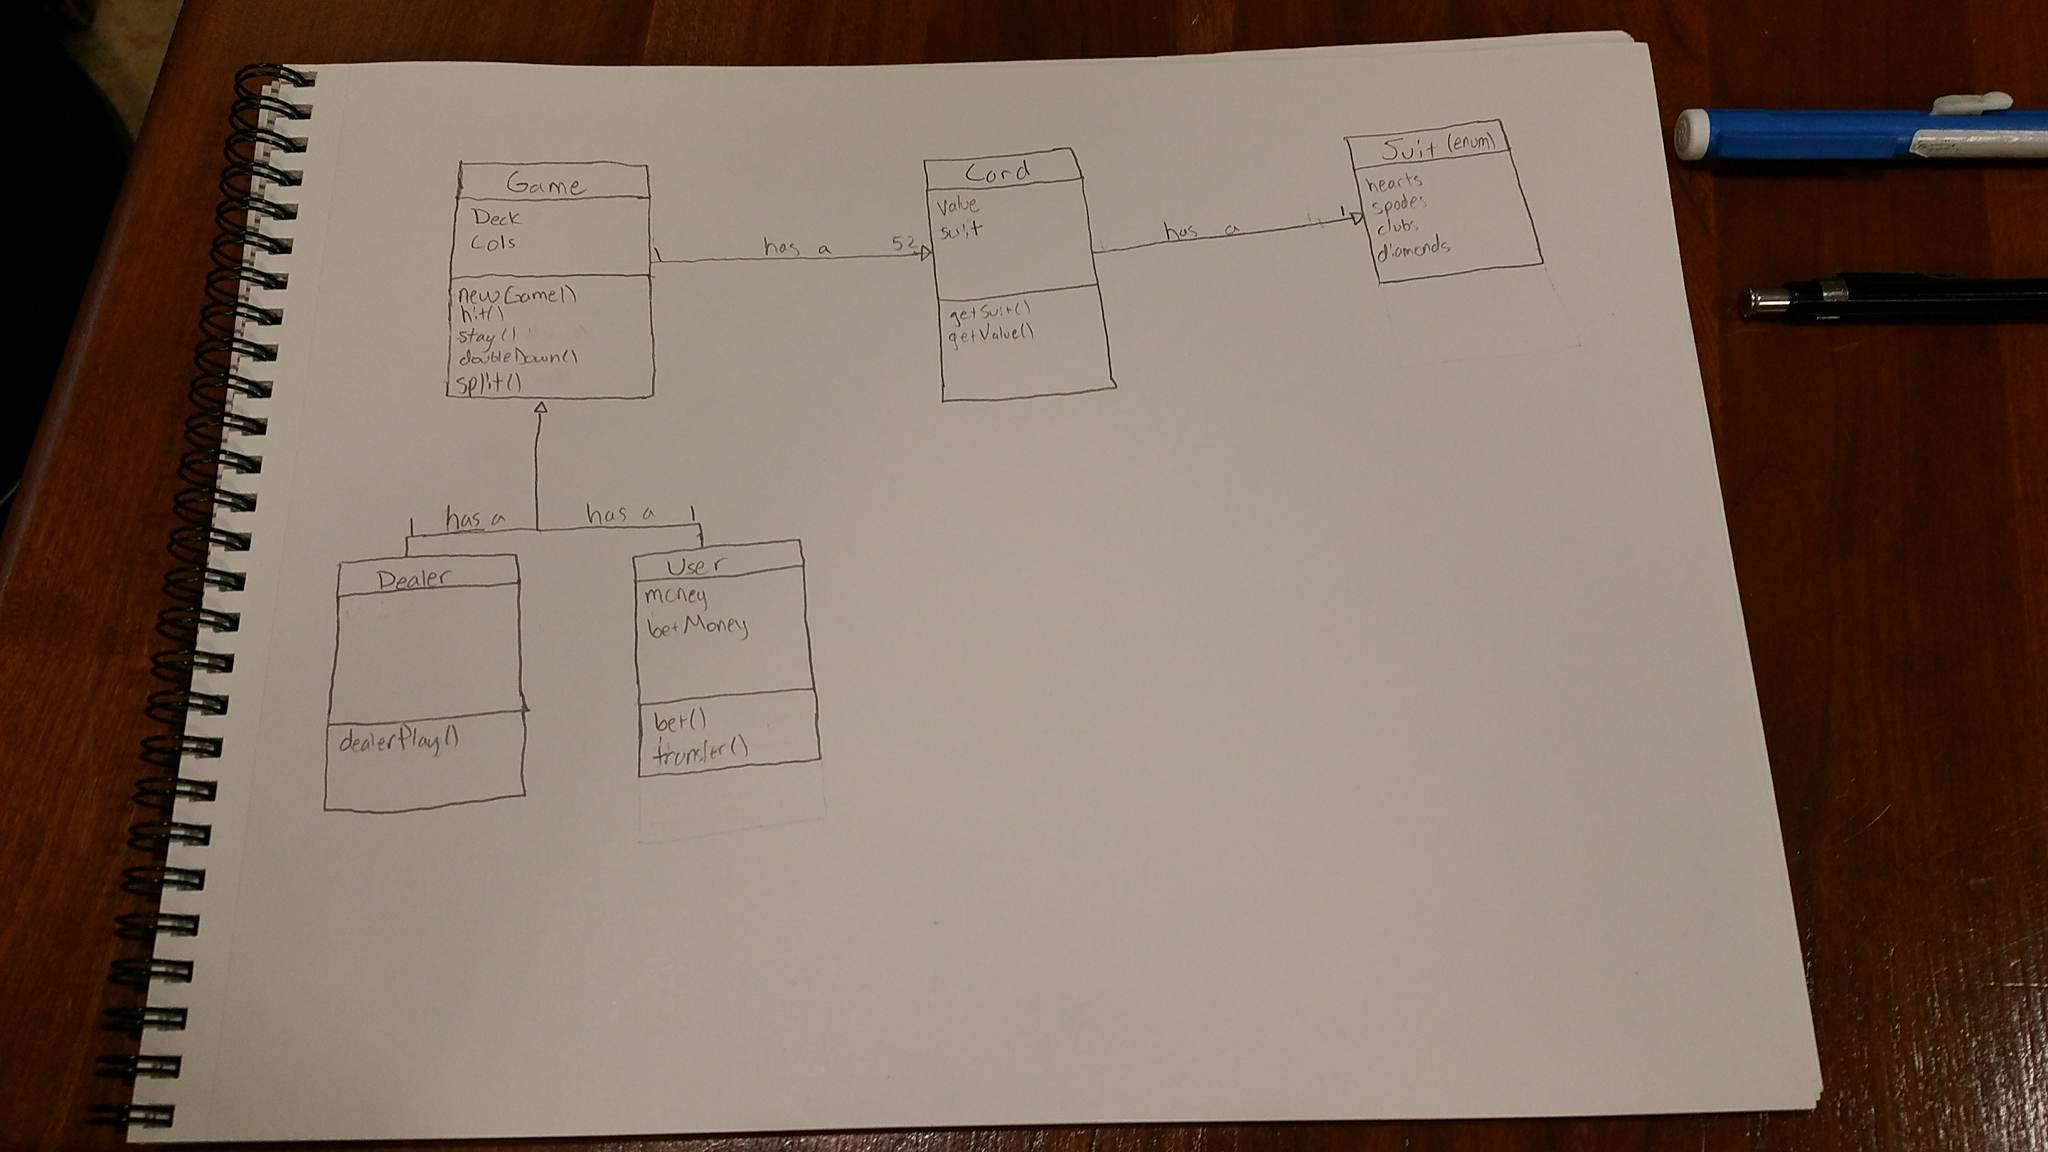 Game
Deck
Cols
newGame()
hit()
stay()
doubleDown()
split()
1 has a 52
Card
value
suit
getSuit()
getValue()
1 has a 1
Suit (enum)
hearts
spades
clubs
diamonds
1 has a has a 1
Dealer
dealerPlay()
User
money
betMoney
bet()
transfer()